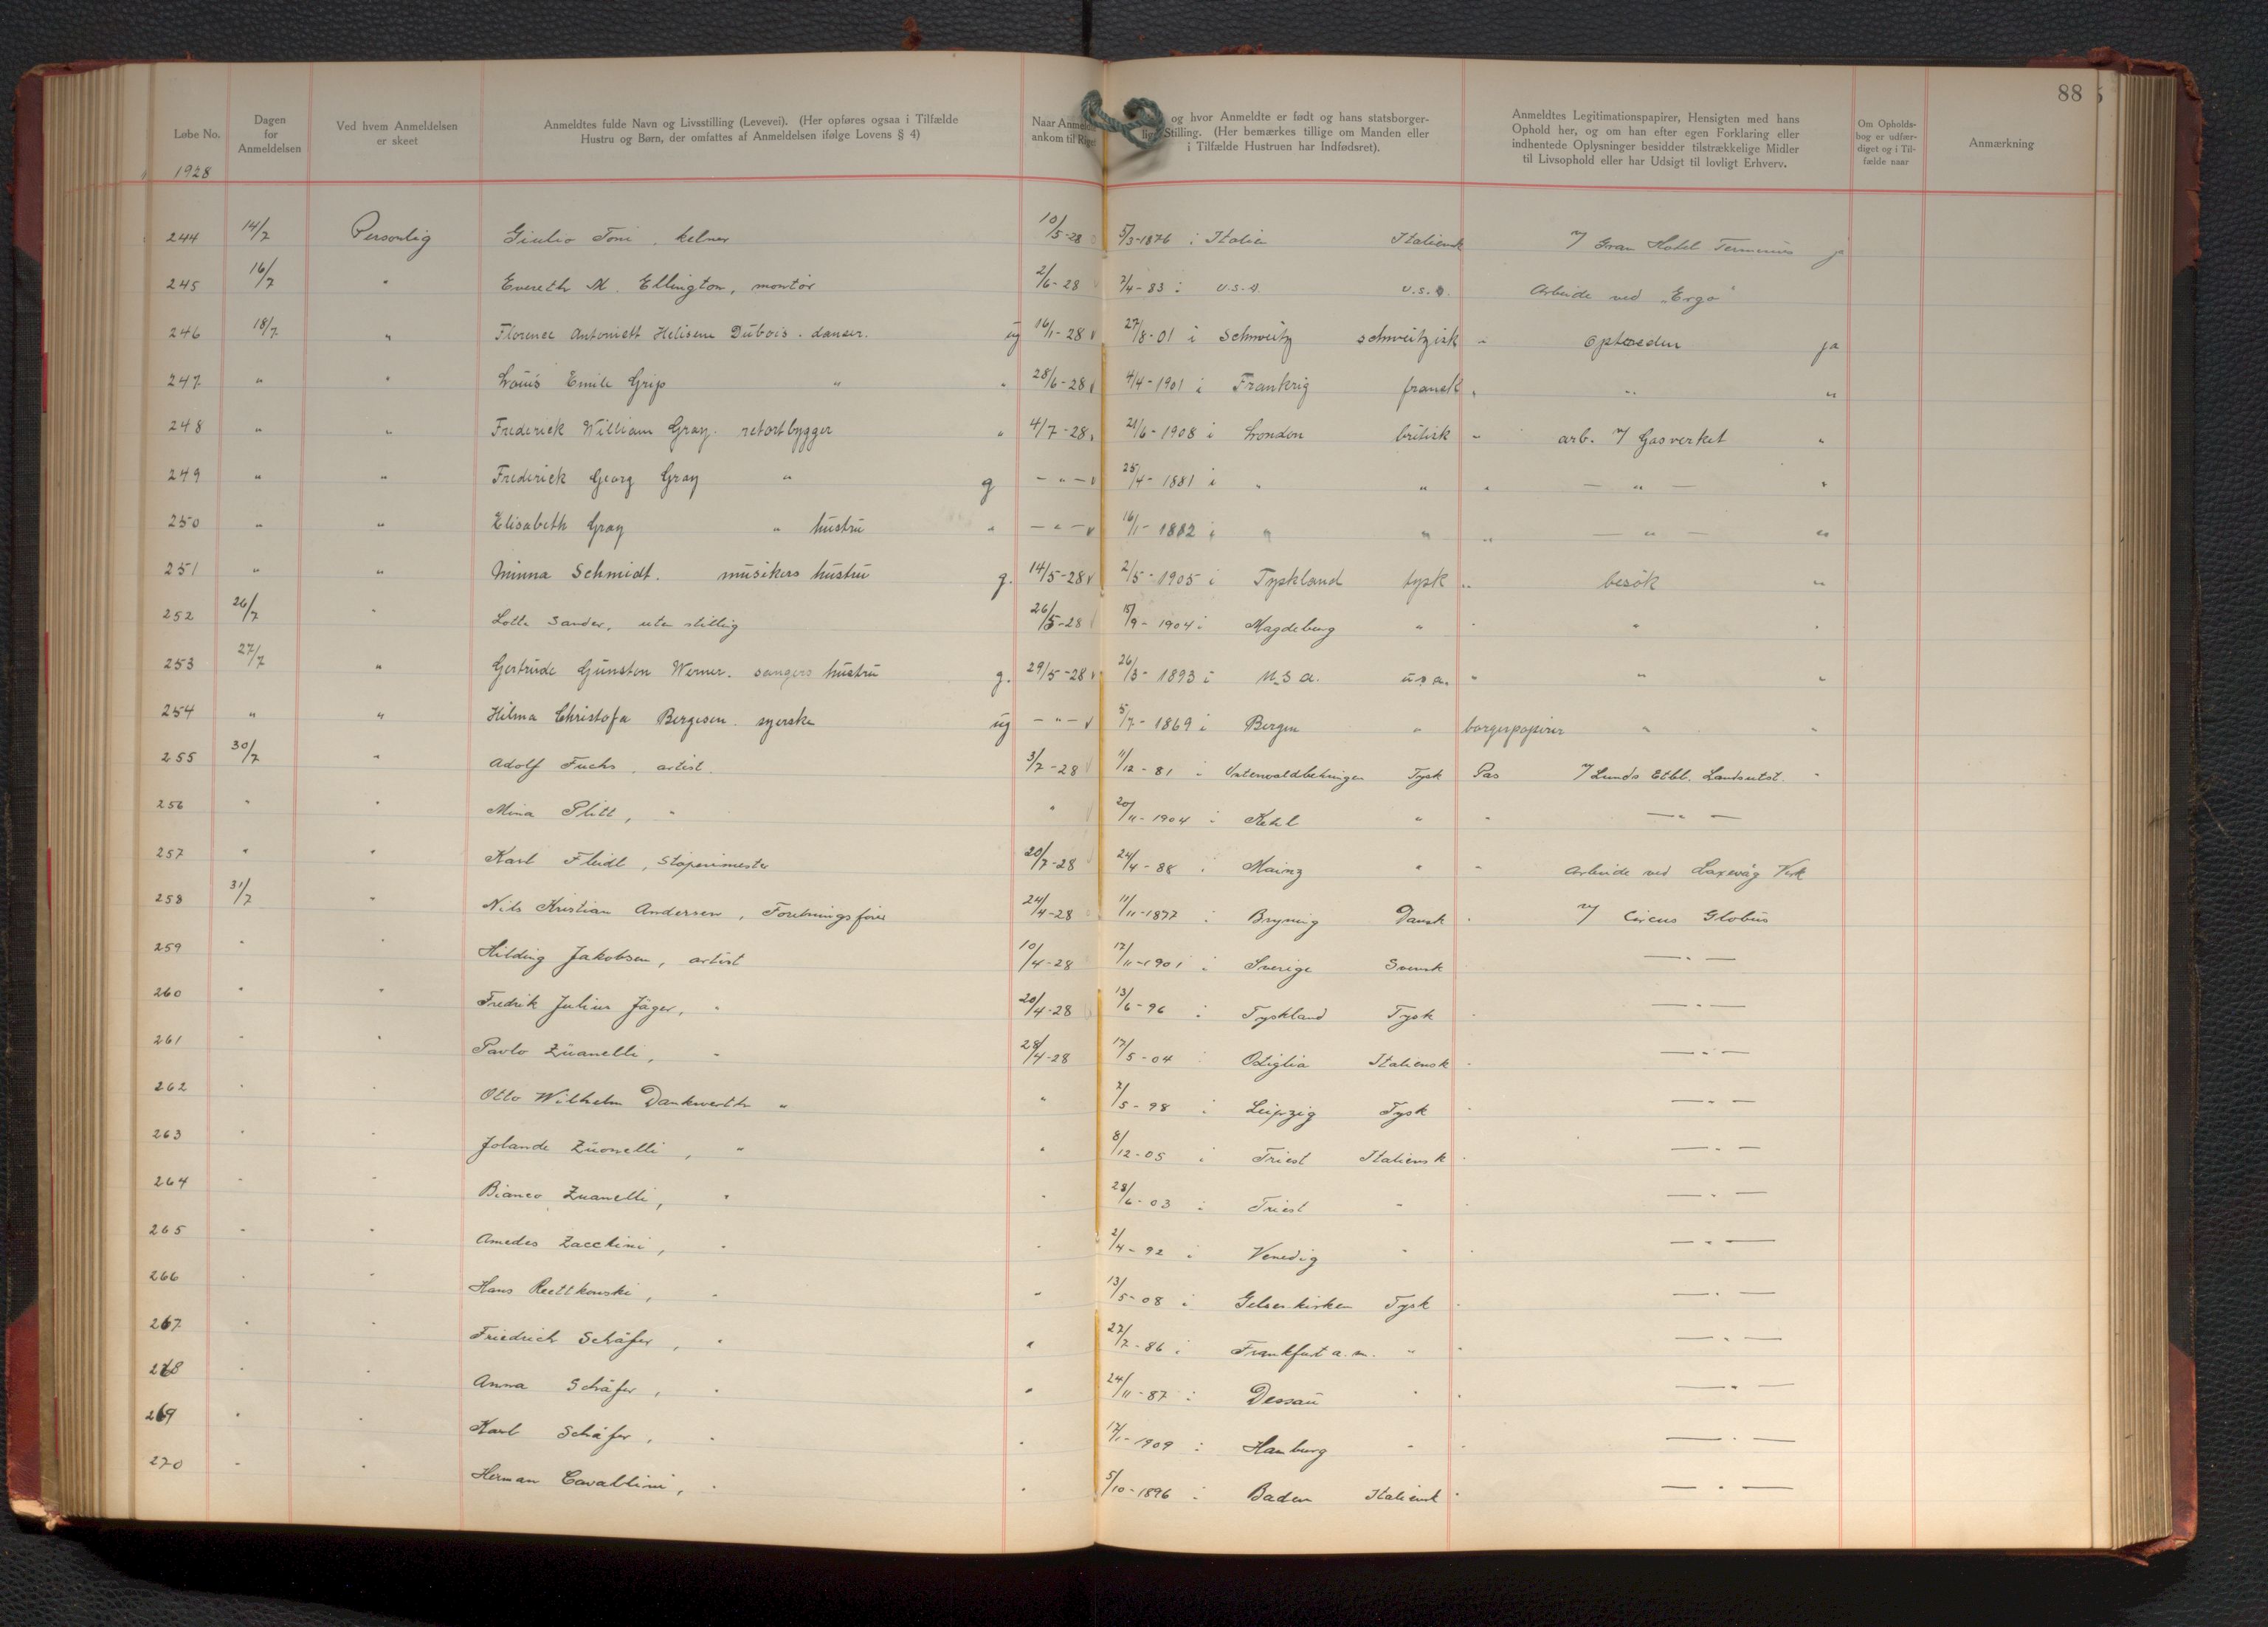 88
Løbe No.
Dagen for Anmeldelsen
Ved hvem Anmeldelsen er skeet
Anmeldtes fulde Navn og Livsstilling (Levevei). (Her opføres ogsaa i Tilfælde
Hustru og Børn, der omfattes af Anmeldelsen ifølge Lovens § 4)
Naar Anmeldte
ankom til Riget
og hvor Anmeldte er født og hans statsborger-
lige Stilling. (Her bemærkes tillige om Manden eller
i Tilfælde Hustruen har Indfødsret).
Anmeldtes Legitimationspapirer, Hensigten med hans
Ophold her, og om han efter egen Forklaring eller
indhentede Oplysninger besidder tilstrækkelige Midler
til Livsophold eller har Udsigt til lovligt Erhverv.
Om Opholds-
bog er udfær-
diget og i Til-
fælde naar
Anmærkning
1928
244 14/7 Personlig Giulio Toni, kelner 10/5-28 5/3-1876 i Italien Italiensk Gran Hotel Terminus ja
245 16/7 " Evereth M. Ellington, montör 2/6-28 7/4-83 i U.S.A U.S.A. Arbeide ved "Ergo"
246 18/7 " Florence Antoniett Helisene Dubois. danser. ug 16/1-28 v 27/8-01 i Schweitz schweitzisk " optræden ja
247 " " Louis Emile Grip " " 28/6-28 v 4/4-1901 i Frankrig fransk " " "
248 " " Frederick William Gray. retortbygger " 4/7-28 v 21/6-1908 i London britisk " arb. v/ Gasverket "
249 " " Frederick Georg Gray " g - " - v 25/4-1881 i " " " - " - "
250 " " Elisabeth Gray " hustru " - " - v 16/1-1882 i " " " - " - "
251 " " Minna Schmidt. musikers hustru g. 14/5-28 v 2/5-1905 i Tyskland tysk " besök "
252 26/7 " Lotte Sander, uten stillig 26/5-28 15/9-1904 i Magdeburg " " " "
253 27/7 " Gertrude Gunston Werner. sangers hustru g. 29/5-28 v 26/3-1893 i U.S.A. u.s.a. " " "
254 " " Hilma Christofa Bergesen. syerske ug - " - v 5/7-1869 i Bergen " borgerpapirer " "
255 30/7 " Adolf Fuchs, artist. 3/7-28 11/12-81 i Tysk Pas v/ Lunds Etbl. Landsutst. "
256 " " Mina Plitt, " " 20/11-1904 i Kehl " " - " -
257 " " Karl Fleidl, Støperimester 20/7-28 24/4-88 i Mainz " " Arbeide ved Laxevåg Verk
258 31/7 " Nils Kristian Andersen, Foretningsfører 24/4-28 11/11-1877 i Bryning Dansk " v/ Circus Globus
259 " " Hilding Jakobsen, artist 10/4-28 17/11-1901 i Sverige Svensk " - " -
260 " " Fredrik Julius Jäger, " 20/4-28 13/6-96 i Tyskland Tysk " - " -
261 " " Paolo Zuanelli, " 28/4-28 17/5-04 i Ostiglia Italiensk " - " -
262 " " Otto Wilhelm Dankwerth " " 7/5-98 i Leipzig Tysk " - " -
263 " " Jolande Zuonelli, " " 8/12-05 i Triest Italiensk " - " -
264 " " Bianco Zuanelli, " " 28/6-03 i Triest " " - " -
265 " " Amedeo Zacchini, " " 2/4-92 i Venedig " " - " -
266 " " Hans Reettkowski, " " 13/5-08 i Gelsenkirken Tysk " - " -
267 " " Friedrich Schäfer, " " 27/7-86 i Frankfurt a.m. " " - " -
268 " " Anna Schäfer, " " 24/11-87 i Dessau " " - " -
269 " " Karl Schäfer, " " 17/1-1909 i Hamburg " " - " -
270 " " Herman Cavallini, " " 5/10-1896 i Baden Italiensk " - " -